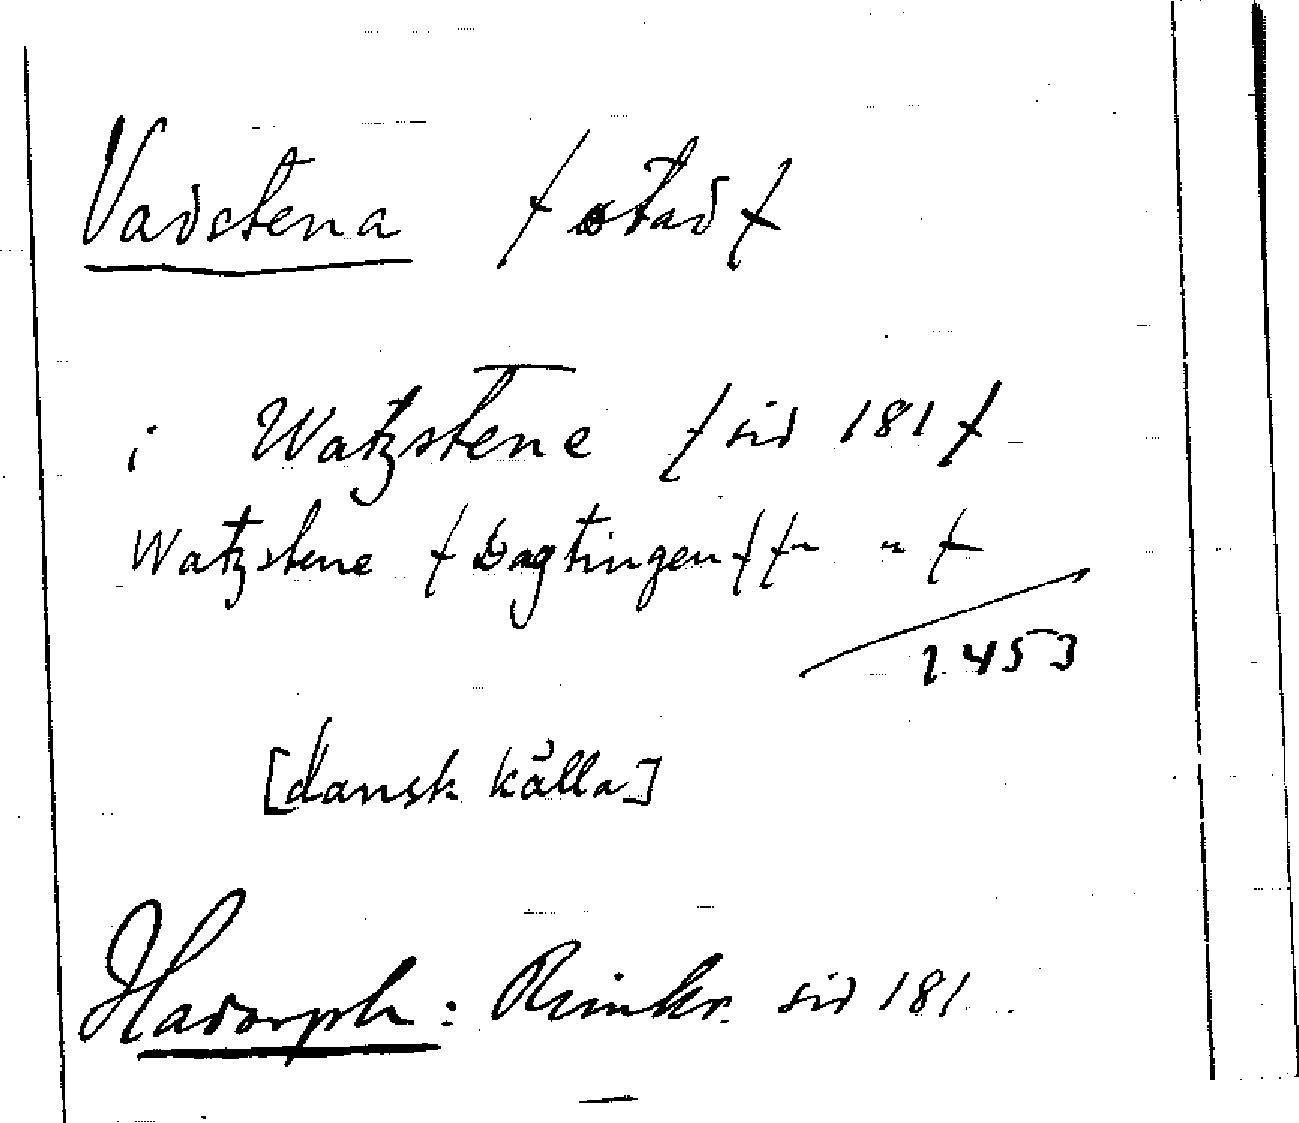 Vadstena /stad/
i Watzstene /sid 181/
Watzstene /Dagtingen/ /" "/
1453
[dansk källa]
Hadorph: Rimkr. sid 181